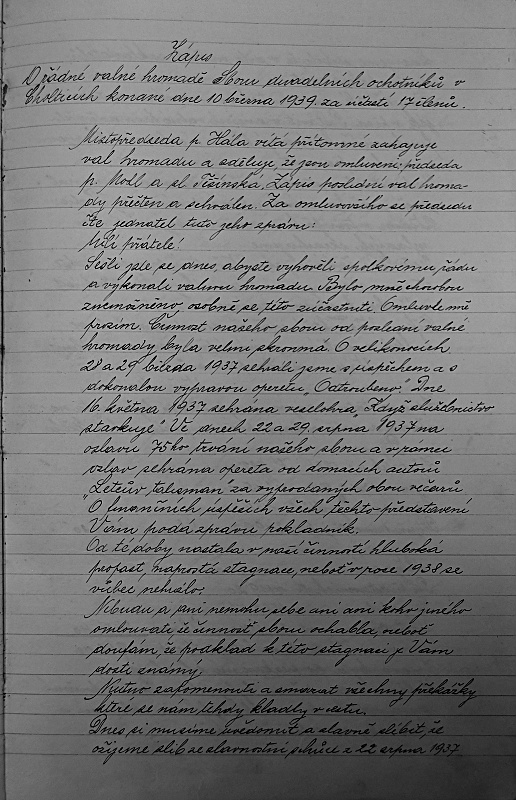 Zápis
O řádné valné hromadě Sboru divadelních ochotníků v
Cholticích konané dne 10 března 1939 za účasti 17 členů.
Místopředseda p. Hála vítá přítomné zahajuje
val. hromadu a sděluje, že jsou omluveni: předseda
p. Moll a sl. Těšínská. Zápis poslední val. hroma-
dy přečten a schválen. Za omluvivšího se předsedu
čte jednatel tuto jeho zprávu:
Milí přátelé!
Sešli jste se dnes, abyste vyhověli spolkovému řádu
a vykonali valnou hromadu. Bylo mně chorobou
znemožněno, osobně se této zúčastniti. Omluvte mě
prosím. Činnost našeho sboru od poslední valné
hromady byla velmi skromná. O velikonocích,
28 a 29. března 1937 sehráli jsme s úspěchem a s
dokonalou výpravou operetu „Ostroubeno“. Dne
16. května 1937 sehrána veselohra „Když služebnictvo
stávkuje“ Ve dnech 22 a 29. srpna 1937 na
oslavu 75ho trvání našeho sboru a v rámci
oslav sehrána opereta od domácích autorů
talisman“ za vyprodaných obou večerů
O finančních úspěších všech těchto představení
Vám podá zprávu pokladník.
Od té doby nastala v naší činnosti hluboká
propast, naprostá stagnace, neboť v roce 1938 se
vůbec nehrálo.
Nebudu a ani nemohu sebe ani ani koho jiného
omlouvati že činnost sboru ochabla, neboť
doufám, že podklad k této stagnaci je Vám
dosti známý.
Nutno zapomenouti a smazat všechny překážky
které se nám tehdy kladly v cestu.
Dnes si musíme uvědomit a slavně slíbit, že
ožijeme slib ze slavnostní schůze z 22 srpna 1937